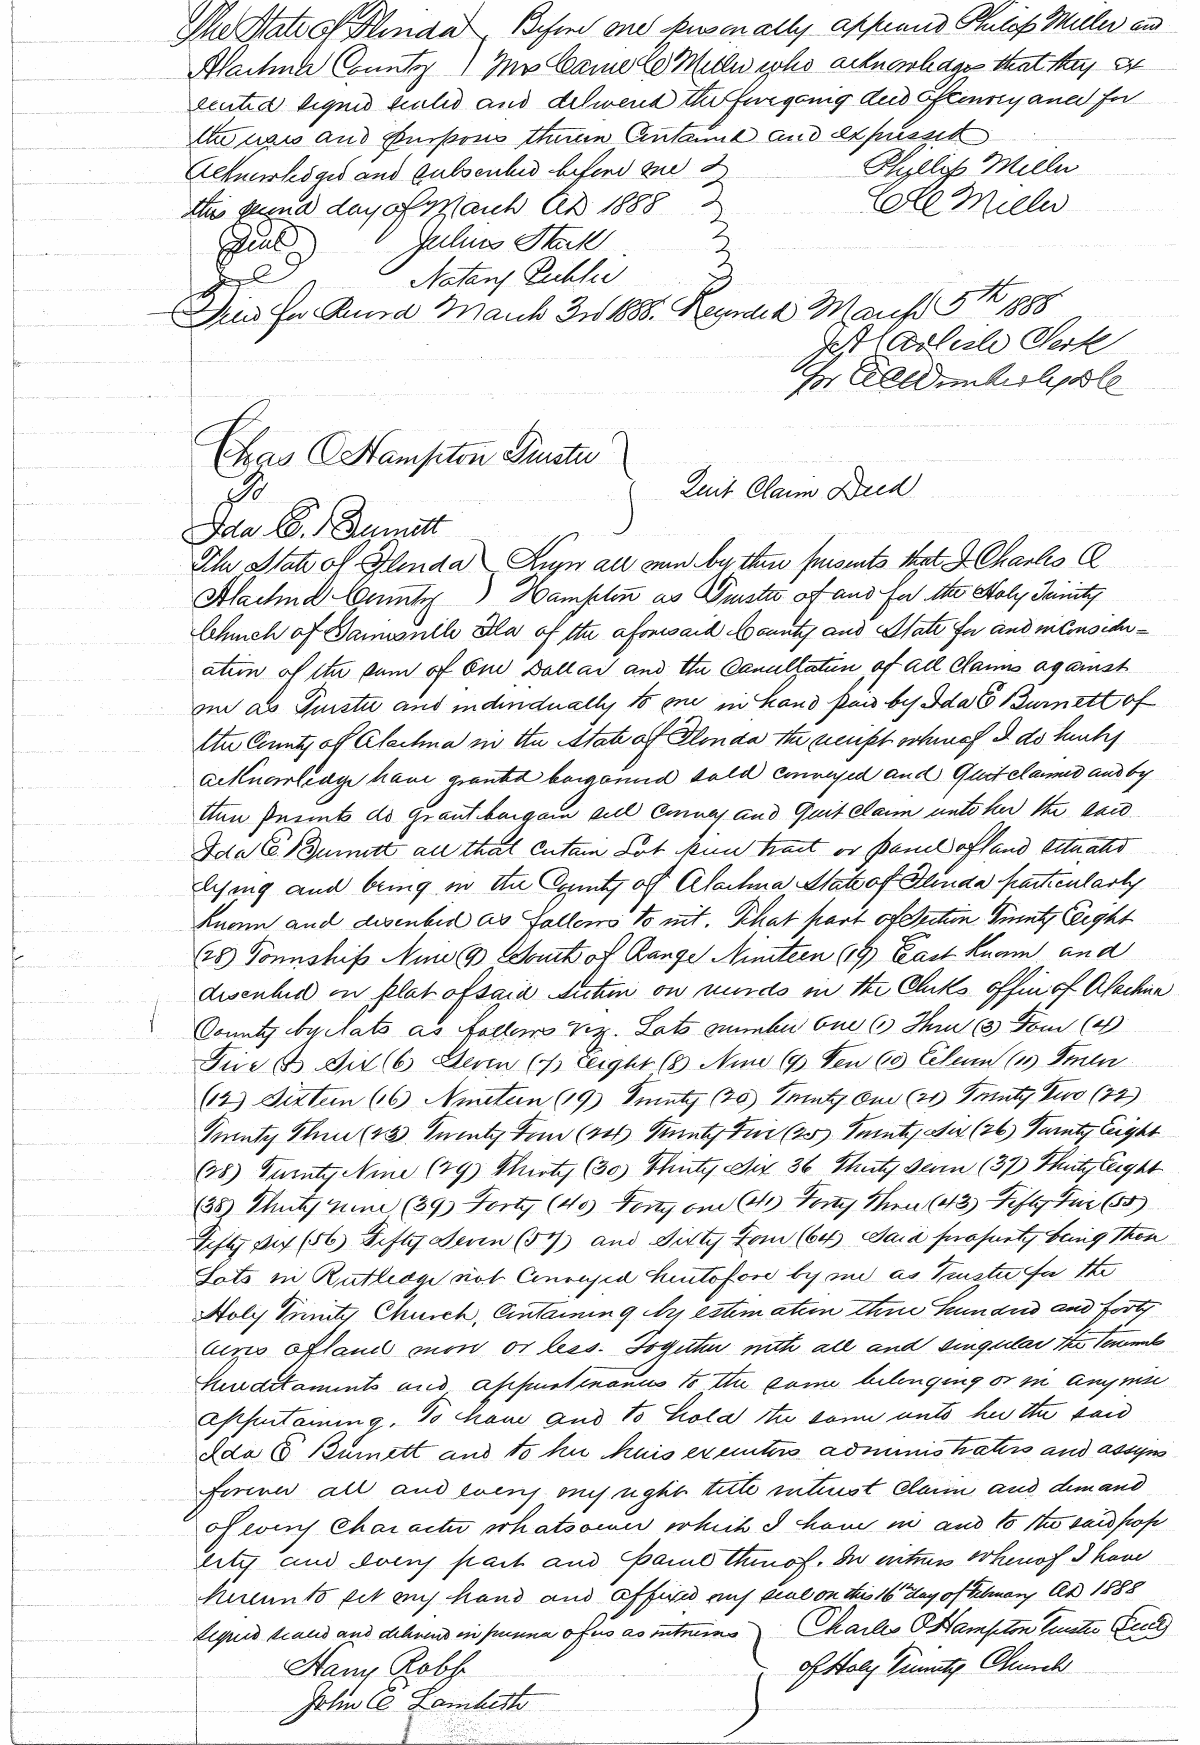 The State of Florida ) Before me personally appeared Philip Miller and
Alachua County ) Mrs Carrie C Miller who acknowledges that they ex
ecuted signed sealed and delivered the foregoing deed of conveyance for
the uses and purposes therein Contained and expressed
Acknowledged and subscribed before me } Phillip Miller
this second day of March AD 1888 } C C Miller
(Seal) Julius Stark
Notary Public
Filed for Record March 3rd 1888. Recorded March 5th 1888
J A Carlisle Clerk
for
Chas O Hampton Trustee }
To } Quit Claim Deed
Ida E. Burnett
The State of Florida ) Know all men by these presents that I Charles O
Alachua County ) Hampton as Trustee of and for the Holy Trinity
Church of Gainesville Fla of the aforesaid County and State for and in Consider=
ation of the sum of One Dollar and the Cancellation of all Claims against
me as Trustee and individually to me in hand paid by Ida E Burnett of
the County of Alachua in the State of Florida the receipt whereof I do hereby
acknowledge have granted bargained sold conveyed and Quit claimed and by
these presents do grant bargain sell convey and Quit claim unto her the said
Ida E Burnett all that certain Lot piece tract or parcel of land situated
lying and being in the County of Alachua State of Florida particularly
known and described as follows to wit. That part of Section Twenty Eight
(28) Township Nine (9) South of Range Nineteen (19) East known and
described on plat of said section on records in the Clerks office of Alachua
County by Lots as follows viz. Lots number One (1) Three (3) Four (4)
Five (5) Six (6) Seven (7) Eight (8) Nine (9) Ten (10) Eleven (11) Twelve
(12) Sixteen (16) Nineteen (19) Twenty (20) Twenty One (21) Twenty Two (22)
Twenty Three (23) Twenty Four (24) Twenty Five (25) Twenty Six (26) Twenty Eight
(28) Twenty Nine (29) Thirty (30) Thirty Six 36 Thirty Seven (37) Thirty Eight
(38) Thirty nine (39) Forty (40) Forty one (41) Forty Three (43) Fifty Five (55)
Fifty Six (56) Fifty Seven (57) and Sixty Four (64) Said property being those
Lots in Rutledge not Conveyed heretofore by me as Trustee for the
Holy Trinity Church, Containing by estimation three hundred and forty
acres of land more or less. Together with all and singular the tenements
hereditaments and appurtenances to the same belonging or in anywise
appertaining. To have and to hold the same unto her the said
Ida E Burnett and to her heirs executors administrators and assigns
forever all and every my right title interest claim and demand
of every Character whatsoever which I have in and to the said prop
erty and every part and parcel thereof. In witness whereof I have
hereunto set my hand and affixed my seal on this 16th day of February AD 1888
signed sealed and delivered in presence of us as witness ) Charles O Hampton Trustee (Seal)
Harry Robb of Holy Trinity Church
John C Lambeth